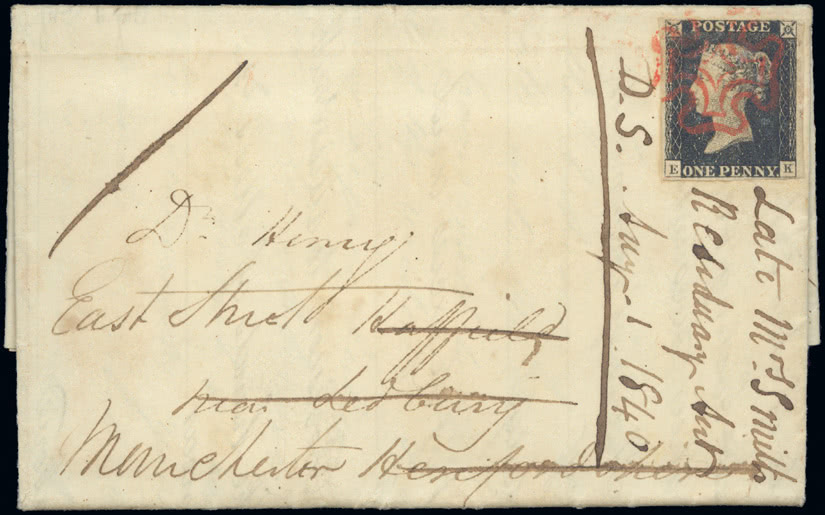 POSTAGE
E ONE PENNY K
Dr Henry
East Street Haffield
near Ledbury
Manchester Herefordshire
D.S. Augt 1 1840
Late Mrs Smith
Residuary